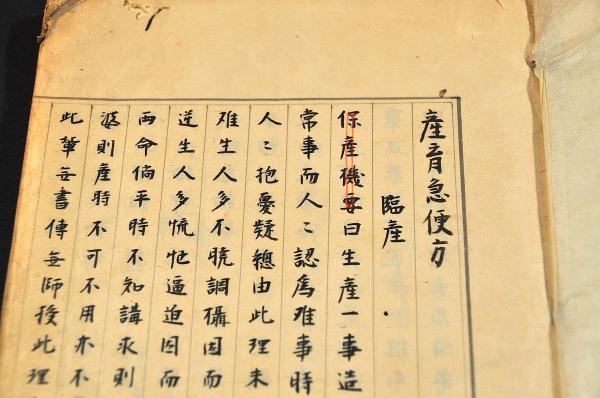 產育急便方
臨產
保產機要曰生產一事造
常事而人〻認爲难事時
人〻抱憂疑總由此理未
难生人多不晓調攝因而
逆生人多慌忙逼迫因而
兩命倘平時不知講求則
婆則產時不可不用亦不
此輩每書傳每師授此理